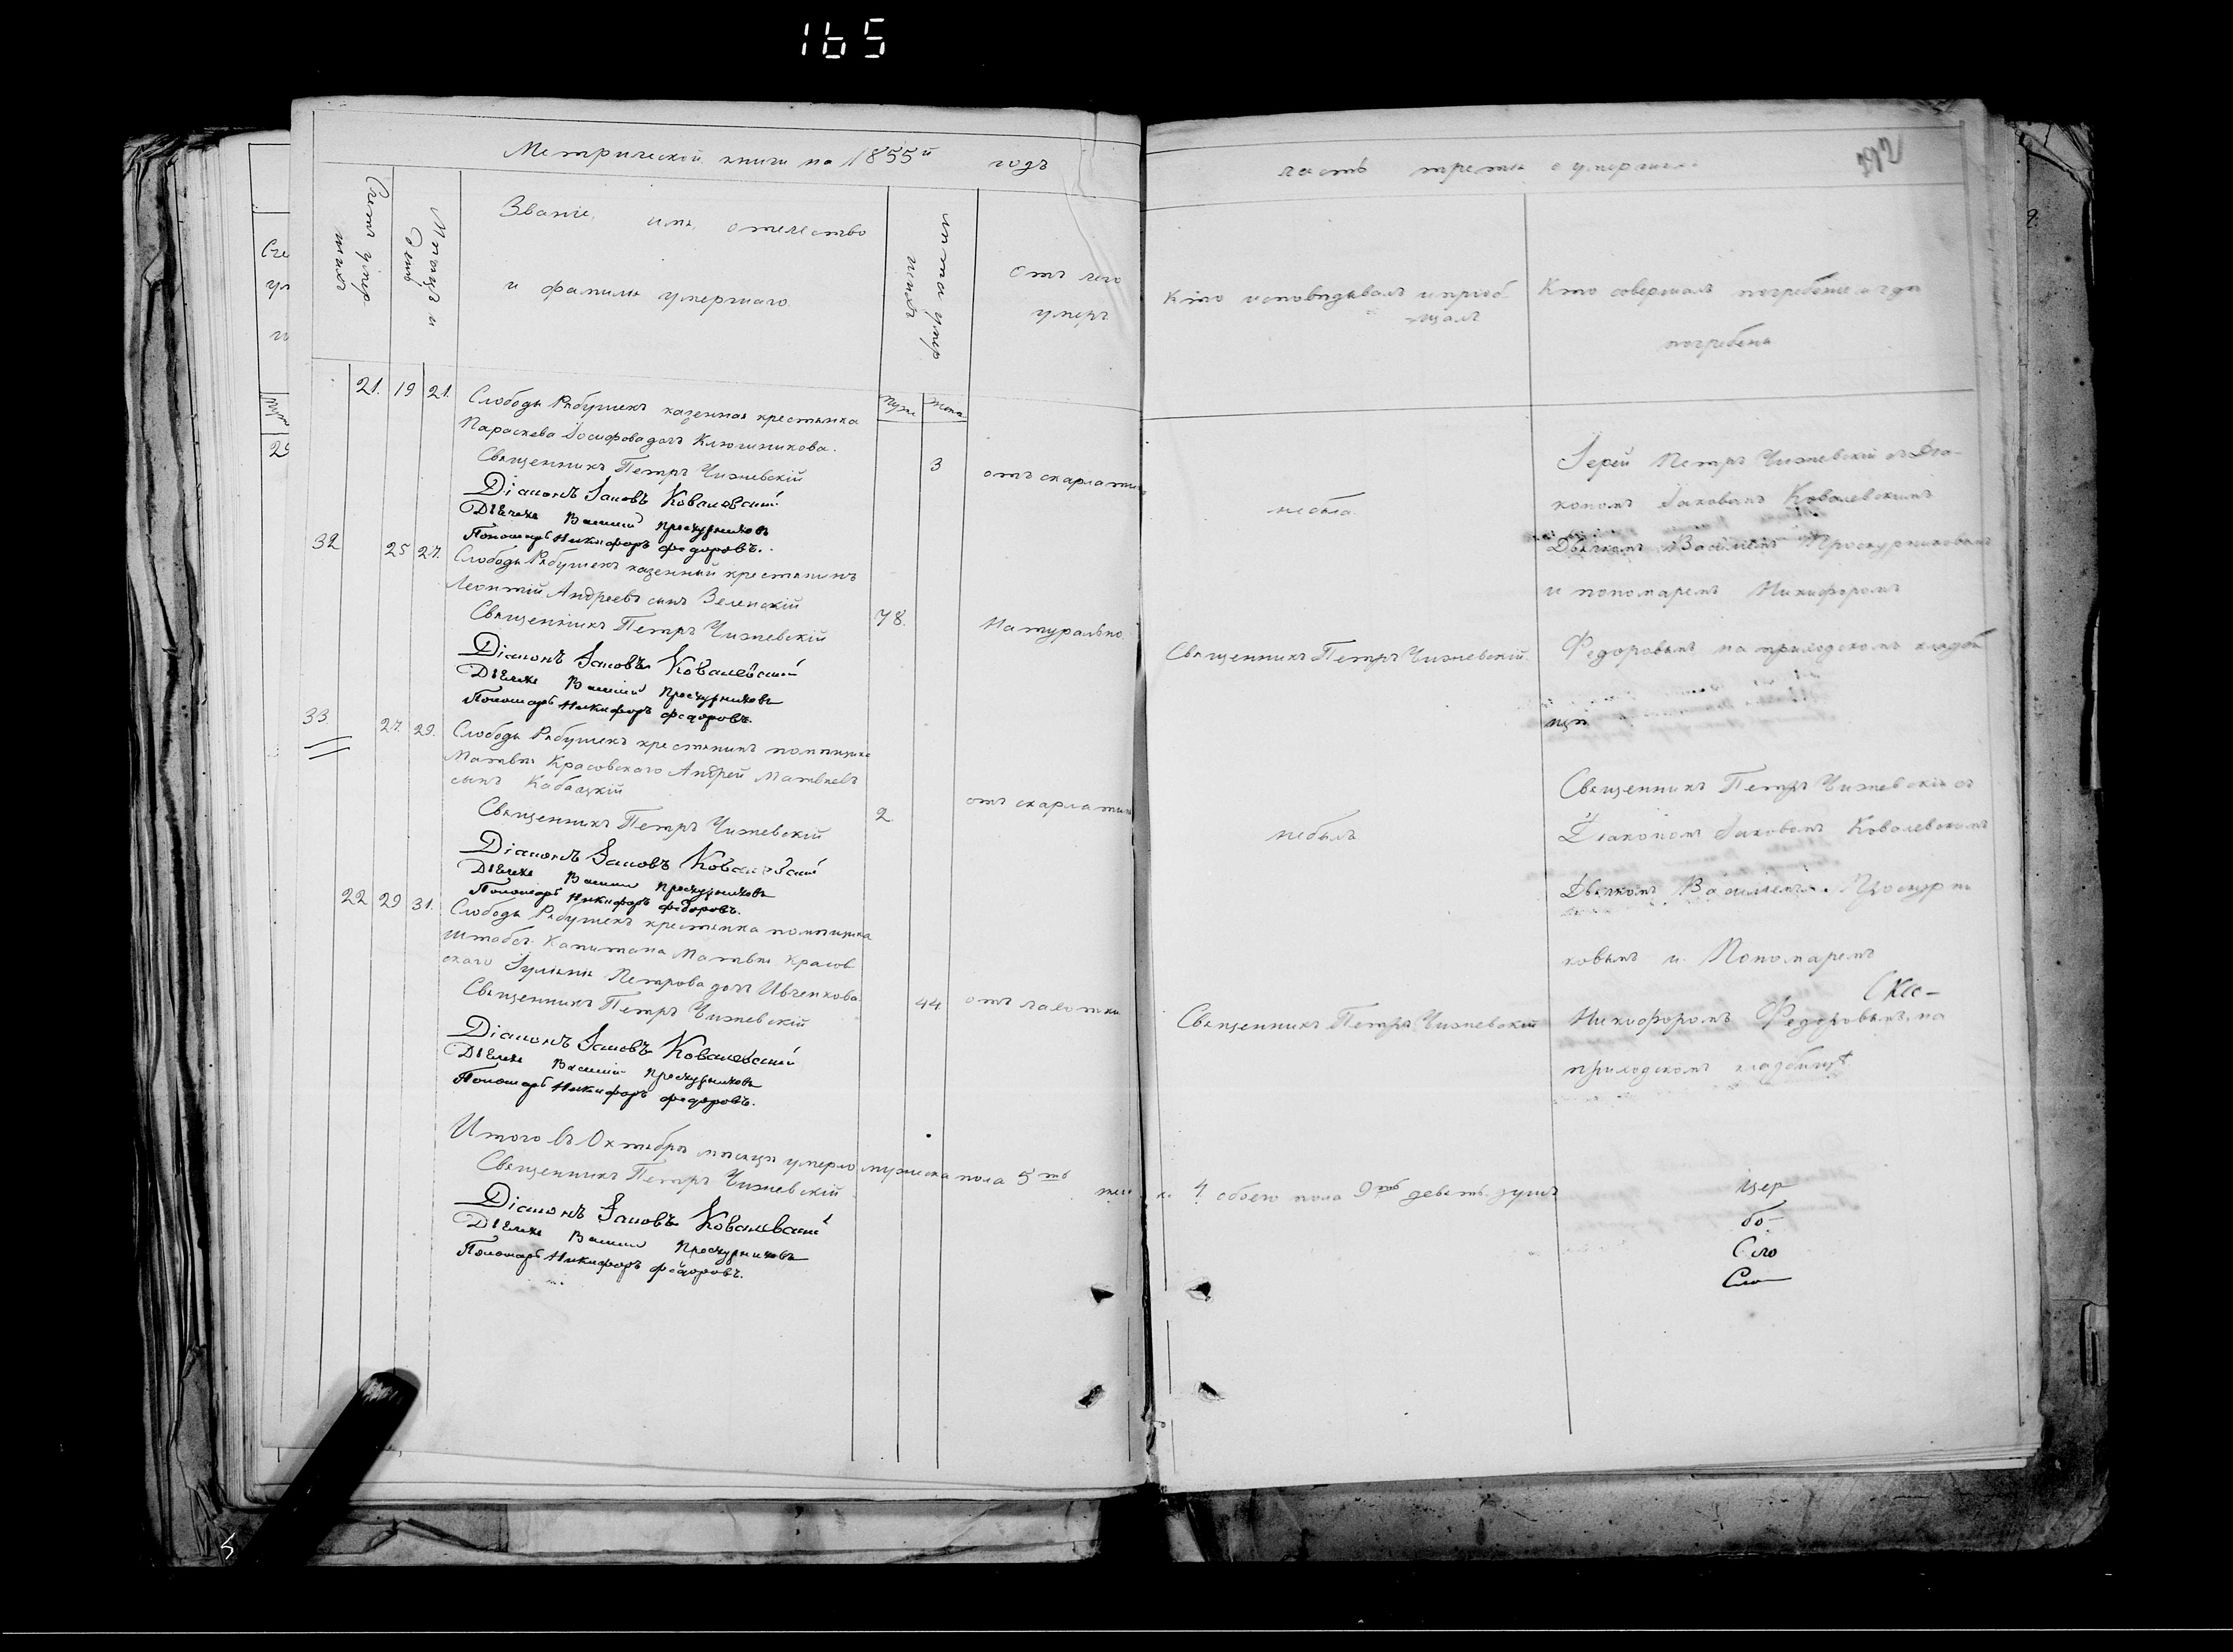 165
Метрической книги на 1855й годъ
часть третья о умершихъ
292
Счетъ умер
шихъ
Месяцъ и
день
Званіе, имя, отечество
и фамилія умершаго.
лѣта умер
шихъ
Отъ чего
умеръ
Кто исповѣдывалъ и пріоб-
-щалъ
Кто совершалъ погребеніе и гдѣ
погребенъ
Муж Жен.
21. 19 21. Слободы Рябушекъ казенная крестьянка
Параскева Іосифова дочь Ключникова.
3 отъ скарлатины
не была.
Священникъ Петръ Чижевскій
Діаконъ Іаковъ Ковалевскій
Дьячекъ Василій Проскурниковъ
Пономарь Никифоръ Федоровъ.
Іерей Петръ Чижевскій съ Діа-
кономъ Іаковомъ Ковалевскимъ
Дьячкомъ Василіемъ Проскурниковымъ
и пономаремъ Никифоромъ
Федоровымъ на приходскомъ кладби
щѣ
32 25 27. Слободы Рябушекъ казенный крестьянинъ
Леонтій Андреевъ сынъ Зеленскій
78. Натурально.
Священникъ Петръ Чижевскій.
Священникъ Петръ Чижевскій
Діаконъ Іаковъ Ковалевскій
Дьячекъ Василій Проскурниковъ
Пономарь Никифоръ Федоровъ.
33. 27. 29. Слободы Рябушекъ крестьянинъ помѣщика
Матвѣя Красовскаго Андрей Матвѣевъ
сынъ Кабацкій
2 отъ скарлатины
не былъ
Священникъ Петръ Чижевскій
Діаконъ Іаковъ Ковалевскій
Дьячекъ Василій Проскурниковъ
Пономарь Никифоръ Федоровъ.
Священникъ Петръ Чижевскій съ
Діакономъ Іаковомъ Ковалевскимъ
Дьячкомъ Василіемъ Проскурни
ковымъ и Пономаремъ
Никифоромъ Федоровымъ на
приходскомъ кладбищѣ.
22 29 31. Слободы Рябушекъ крестьянка помѣщика
Штабсъ Капитана Матвѣя Красов
скаго Іулянія Петрова дочь Ивченкова.
44 отъ чахотки
Священникъ Петръ Чижевскій
Священникъ Петръ Чижевскій
Діаконъ Іаковъ Ковалевскій
Дьячекъ Василій Проскурниковъ
Пономарь Никифоръ Федоровъ.
Итого въ Октябрѣ мѣсяцѣ умерло мужеска пола 5ть жен к. 4. обоего пола 9ть девять душъ
Священникъ Петръ Чижевскій
Діаконъ Іаковъ Ковалевскій
Дьячекъ Василій Проскурниковъ
Пономарь Никифоръ Федоровъ.
цер
бо-
Сло